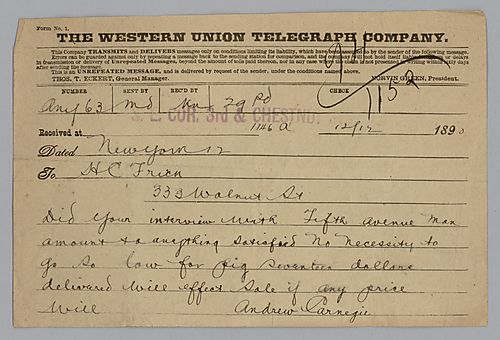 Form No. 1.
THE WESTERN UNION TELEGRAPH COMPANY.
This Company TRANSMITS and DELIVERS messages only on conditions limiting its liability, which have been assented to by the sender of the following message.
Errors can be guarded against only by repeating a message back to the sending station for comparison, and the Company will not hold itself liable for errors or delays
in transmission or delivery of Unrepeated Messages, beyond the amount of tolls paid thereon, nor in any case where the claim is not presented in writing within sixty days
after sending the message.
This is an UNREPEATED MESSAGE, and is delivered by request of the sender, under the conditions named above.
THOS. T. ECKERT, General Manager. NORVIN GREEN, President.
NUMBER SENT BY REC'D BY CHECK
63 Md 29 Pd 1152
S. E. COR. 3rd & CHESTNUT
Received at 1146 A 12/12 1890
Dated New York 12
To H C Frick
333 Walnut St
Did your interview with Fifth avenue man
amount to anything satisfied No Necessity to
go so low for pig seventeen dollars
delivered will effect sale if any price
will Andrew Carnegie